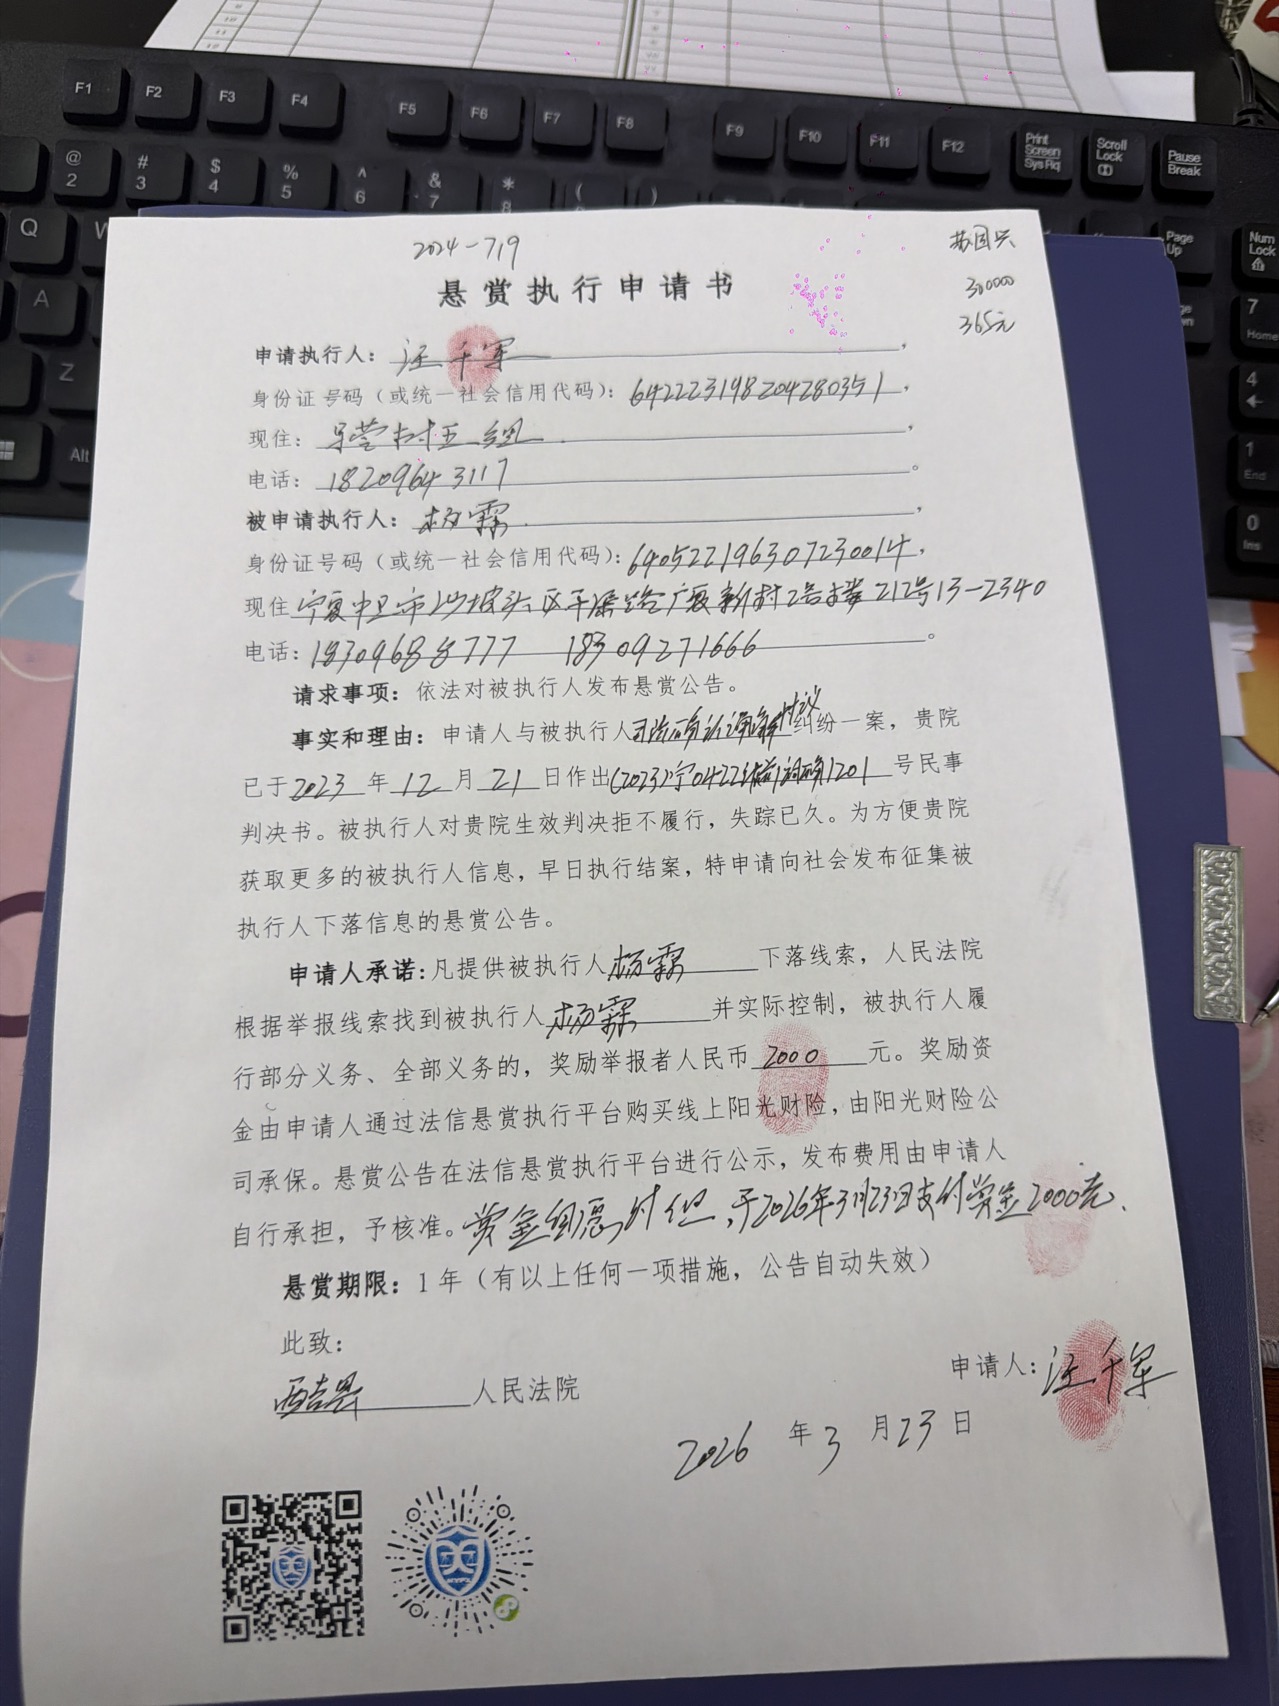 2024-719
苏国兴
悬赏执行申请书
30000
365元
申请执行人：汪千军，
身份证号码（或统一社会信用代码）：642223198204280351，
现住：呈营村五组，
电话：18209643117。
被申请执行人：杨霈，
身份证号码（或统一社会信用代码）：640522196307230014，
现住宁夏中卫市沙坡头区平原路广夏新村2号楼212号13-2340
电话：18309688777 18309271666。
请求事项：依法对被执行人发布悬赏公告。
事实和理由：申请人与被执行人司法确认调解协议纠纷一案，贵院
已于2023年12月21日作出(2023)宁0422诉前调确1201号民事
判决书。被执行人对贵院生效判决拒不履行，失踪已久。为方便贵院
获取更多的被执行人信息，早日执行结案，特申请向社会发布征集被
执行人下落信息的悬赏公告。
申请人承诺：凡提供被执行人杨霈下落线索，人民法院
根据举报线索找到被执行人杨霈并实际控制，被执行人履
行部分义务、全部义务的，奖励举报者人民币2000元。奖励资
金由申请人通过法信悬赏执行平台购买线上阳光财险，由阳光财险公
司承保。悬赏公告在法信悬赏执行平台进行公示，发布费用由申请人
自行承担，予核准。赏金自愿付但，于2026年3月23日支付赏金2000元、
悬赏期限：1年（有以上任何一项措施，公告自动失效）
此致：
西吉县人民法院
申请人：汪千军
2026年3月23日